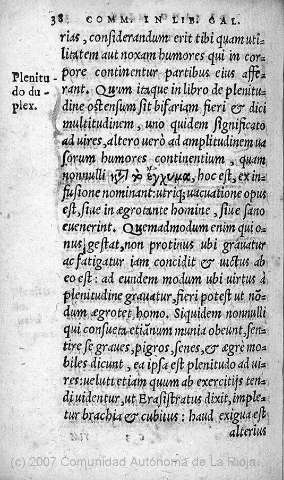 38 COMM. IN LIB. GAL.
rias, considerandum erit tibi quam uti-
litatem aut noxam humores qui in cor-
pore continentur partibus eius affe-
rant. Quum itaque in libro de plenitu-
Plenitu-
do du-
plex.
dine ostensum sit bifariam fieri & dici
multitudinem, uno quidem significato
ad vires, altero verò ad amplitudinem va
sorum humores continentium, quam
nonnulli ἔγχυμα, hoc est, ex in-
fusione nominant: utriq; vacuatione opus
est, sive in ægrotante homine, sive sano
evenerint. Quemadmodum enim qui o-
nus gestat, non protinus ubi gravatur
ac fatigatur iam concidit & victus ab
eo est: ad eundem modum ubi virtus à
plenitudine gravatur, fieri potest ut nõ-
dum ægrotet homo. Siquidem nonnulli
qui consueta etiãnum munia obeunt, sen-
tire se graves, pigros, senes, & ægrè mo-
biles dicunt, ea ipsa est plenitudo ad vi-
res: velutt etiam quum ab exercitijs ten-
di videntur, ut Erasistratus dixit, imple-
tur brachia & cubitus: haud exigua est
alterius
(c) 2007 Comunidad Autónoma de La Rioja